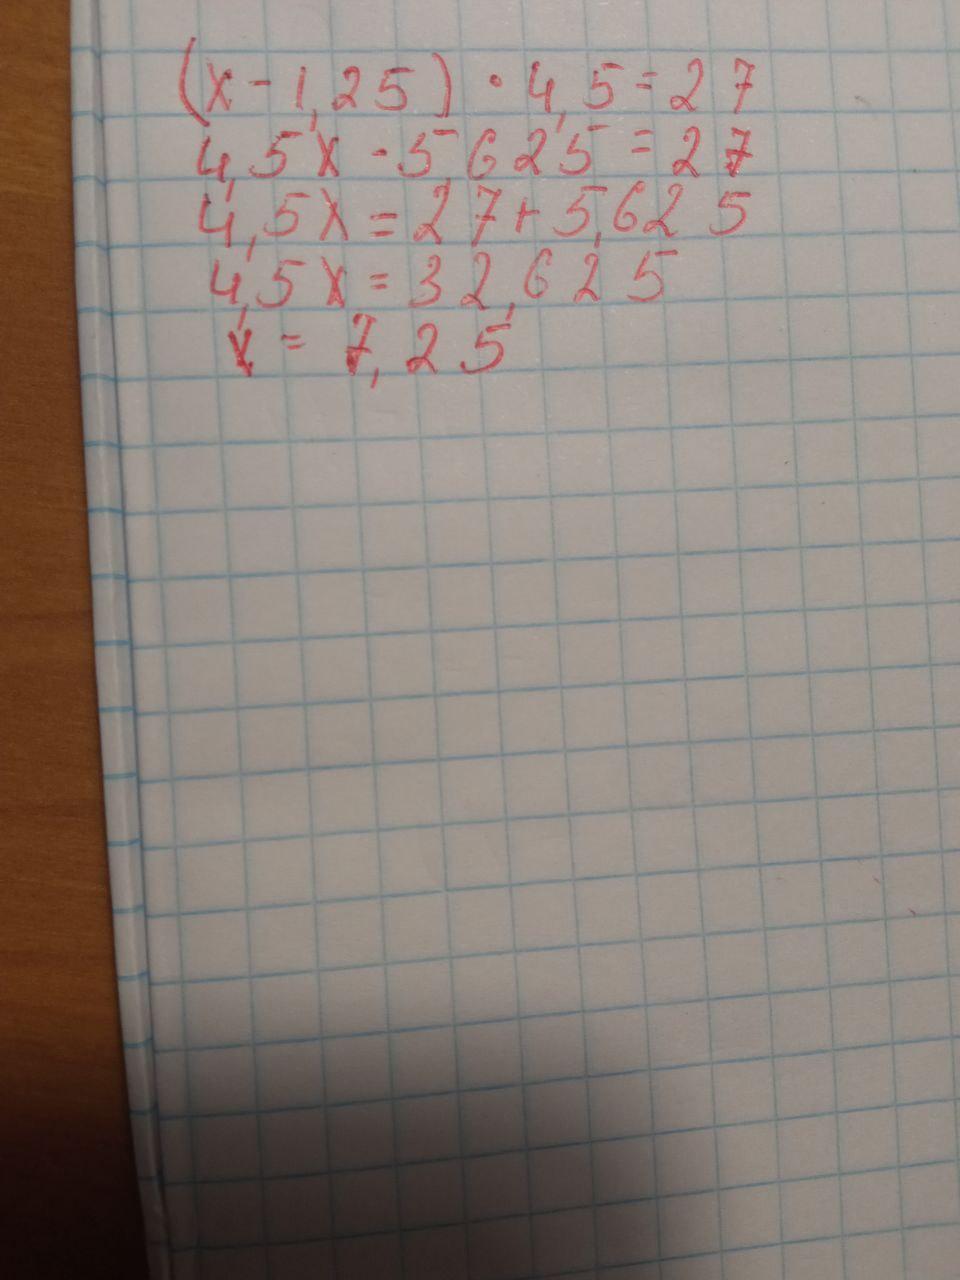 (x - 1,25) · 4,5 = 27
4,5x - 5,625 = 27
4,5x = 27 + 5,625
4,5x = 32,625
x = 7,25